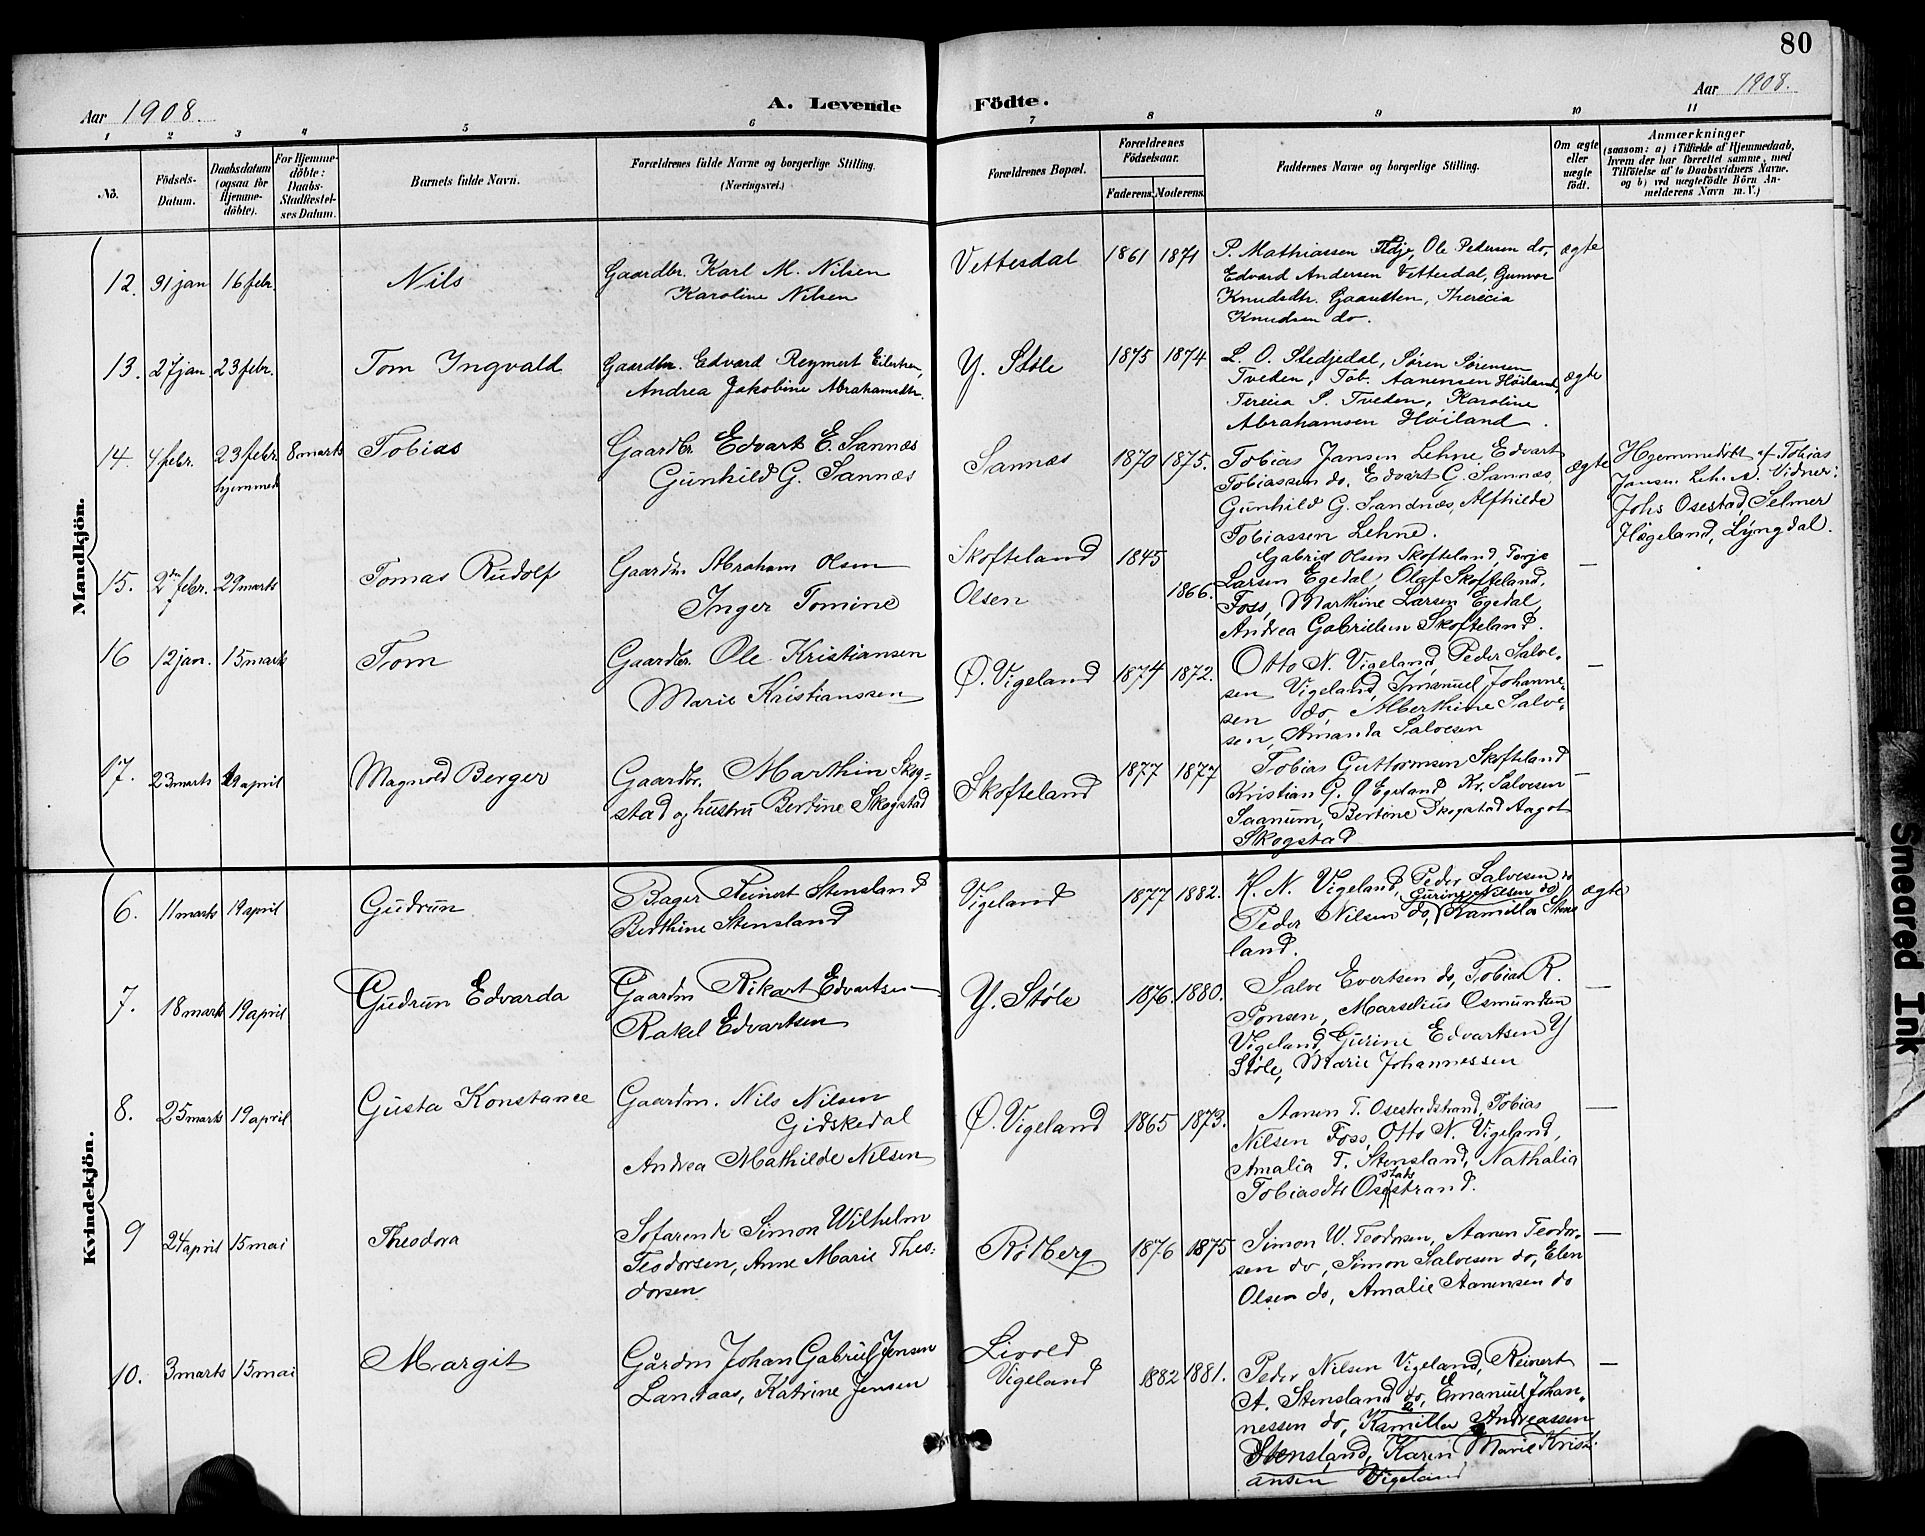 80
Aar 1908.
A. Levende Födte.
Aar 1908.
1 2 3 4 5 6 7 8 9 10 11
No.
Födsels-Datum.
Daabsdatum (ogsaa for Hjemmedöbte).
For Hjemmedöbte: Daabs-Stadfæstelses Datum.
Barnets fulde Navn.
Forældrenes fulde Navne og borgerlige Stilling.
(Næringsvei.)
Forældrenes Bopæl.
Forældrenes Födselsaar.
Faderens. Moderens.
Faddernes Navne og borgerlige Stilling.
Om ægte eller uægte födt.
Anmærkninger
(saasom: a) i Tilfælde af Hjemmedaab, hvem der har forrettet samme, med Tilföielse af to Daabsvidners Navne. og b) ved uægtefödte Börn Anmelderens Navn m. V.)
Mandkjön.
12. 31 jan 16 febr. Nils
Gaardbr. Karl M. Nilsen
Karoline Nilsen
Vettesdal 1861 1871
P. Mathiassen Ole Pedersen do,
Edvard Andersen Vettesdal, Gunvor
Knudsdtr. Therecia
Knudsen do.
ægte
13. 27 jan. 23 febr. Tom Ingvald
Gaardbr. Edvard Reymert Eilertsen,
Andrea Jakobine Abrahamsdtr.
Y. Støle 1875 1874
L. O. Stedjedal, Søren Sørensen
Tveden, Tob. Aanensen Höiland,
Terecia S. Tveden, Karoline
Abrahamsen Höiland.
ægte
14. 4 febr. 23 febr. hjemmed 8 marts Tobias
Gaardbr. Edvart E. Sannæs
Gunhild G. Sannæs
Sannæs 1870 1875.
Tobias Jansen Lehne Edvart
Tobiassen do. Edvart G. Sannæs
Gunhild G. Sandnæs, Alfhilde
Tobiassen Lehne.
ægte
Hjemmedöbt af Tobias
Jansen Vidner:
Johs Osestad, Selmer
Hægeland, Lyngdal.
15. 2den febr. 29 marts Tomas Rudolf
Gaardm Abraham Olsen
Inger Tomine
Skofteland
Olsen
1845 1866.
Gabriel Olsen Skofteland, Torje
Larsen Egedal, Olaf Skofteland,
Foss, Marthine Larsen Egedal,
Andrea Gabrielsen Skofteland.
—
16 12 jan. 15 marts Tom
Gaardbr. Ole Kristiansen
Marie Kristianssen
Ø. Vigeland 1874 1872.
Otto N. Vigeland, Peder Salve-
sen Vigeland, Imanuel Johanne-
sen do, Alberthine Salve-
sen, Amanda Salvesen
—
17. 23 marts 19 april Magnold Berger
Gaardbr. Marthin Skog-
stad og hustru Bertine Skogstad
Skofteland 1877 1877
Tobias Guttormsen Skofteland
Kristian G. Ø Egeland Kr. Salvesen
Saanum, Bertine Skogstad Aagot
Skogstad
—
Kvindekjön.
6. 11 marts 19 april Gudrun
Bager Reinert Stensland
Berthine Stensland
Vigeland 1877 1882.
K. N. Vigeland, Peder Salvesen do
Gurine Nilsen do,
Peder Nilsen do, Kamilla Stens
land.
ægte
7. 18 mart 19 april Gudrun Edvarda
Gaardm Rikart Edvartsen
Rakel Edvartsen
Y. Støle 1876. 1880.
Salve Evertsen do, Tobias R.
Ponsen, Marselius Osmundsen
Vigeland, Gurine Edvartsen Y
Støle, Marie Johannessen
—
8. 25 marts 19 april Gusta Konstance
Gaardm. Nils Nilsen
Gidskedal
Andrea Mathilde Nilsen
Ø. Vigeland 1865 1873.
Aanen T. Osestadstrand, Tobias
Nilsen Foss, Otto N. Vigeland,
Amalia T. Stensland, Nathalia
stads
Tobiasdtr Osestrand.
—
9 24 april 15 mai Theodora
Sofarende Simon Wilhelm
Teodorsen, Anne Marie Theo-
dorsen
Rödberg 1876 1875
Simon W. Teodorsen, Aanen Teodor-
sen do, Simon Salvesen do, Elen
Olsen do, Amalie Aanensen do
—
10. 3 marts 15 mai Margit
Gårdm Johan Gabriel Jensen
Landaas, Katrine Jensen
Livold
Vigeland
1882 1881.
Peder Nilsen Vigeland, Reinert
A. Stensland do, Emanuel Johan-
nessen do, Kamilla Andreassen
Stensland, Karen Marie Kristi-
ansen Vigeland
—
Smeared Ink